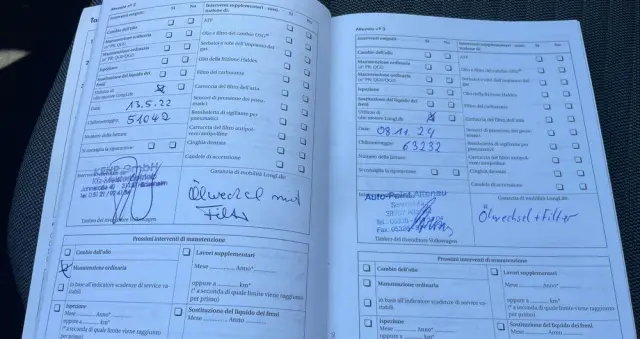 Attestato n° 2
Interventi eseguiti:
Sì
No
Interventi supplementari - sostituzione di:
Sì
No
Cambio dell'olio
ATF
Manutenzione ordinaria
Olio e filtro del cambio DSG®
Manutenzione ordinaria
Serbatoi e rete dell'impianto del gas
Ispezione
Olio della frizione Haldex
Sostituzione del liquido dei freni
Filtro del carburante
Utilizzo di olio motore LongLife
Cartuccia del filtro dell'aria
Data
13.5.22
Sensori di pressione dei pneumatici
Chilometraggio
51042
Bomboletta di sigillante per pneumatici
Numero della fattura
Cartuccia del filtro antipolvere/antipolline
Cinghia dentata
Si consiglia la riparazione
Candele di accensione
Garanzia di mobilità LongLife:
Ölwechsel mit
Filter
Timbro del rivenditore Volkswagen
Prossimi interventi di manutenzione
Cambio dell'olio
Lavori supplementari
Manutenzione ordinaria
Mese Anno*
in base all'indicatore scadenze di service variabili
oppure a km*
(* a seconda di quale limite viene raggiunto per primo)
Ispezione
Sostituzione del liquido dei freni
oppure a km*
Mese Anno
(* a seconda di quale limite viene raggiunto per primo)
Attestato n° 3
Interventi eseguiti:
Sì
No
Interventi supplementari - sostituzione di:
Sì
No
Cambio dell'olio
ATF
Manutenzione ordinaria
Olio e filtro del cambio DSG®
Manutenzione ordinaria
Serbatoi e rete dell'impianto del gas
Ispezione
Olio della frizione Haldex
Sostituzione del liquido dei freni
Filtro del carburante
Utilizzo di olio motore LongLife
Cartuccia del filtro dell'aria
Data
08.11.24
Sensori di pressione dei pneumatici
Chilometraggio
63232
Bomboletta di sigillante per pneumatici
Numero della fattura
Cartuccia del filtro antipolvere/antipolline
Si consiglia la riparazione
Cinghia dentata
Candele di accensione
Auto-Point Altenau
Garanzia di mobilità LongLife:
Ölwechsel + Filter
Timbro del rivenditore Volkswagen
Prossimi interventi di manutenzione
Cambio dell'olio
Lavori supplementari
Manutenzione ordinaria
Mese Anno*
in base all'indicatore scadenze di service variabili
oppure a km*
(* a seconda di quale limite viene raggiunto per primo)
Ispezione
Mese Anno*
Sostituzione del liquido dei freni